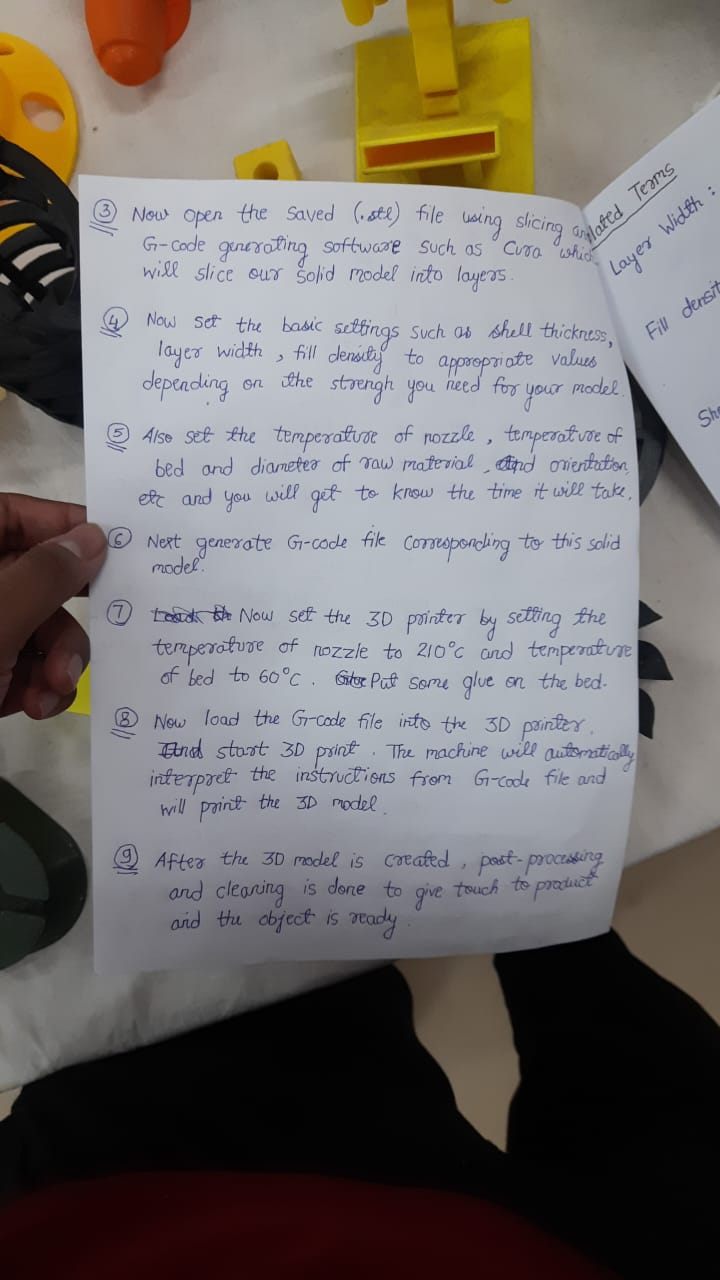 ③ Now open the saved (.stl) file using slicing and
G-code generating software such as Cura which
will slice our solid model into layers.
④ Now set the basic settings such as shell thickness,
layer width, fill density to appropriate values
depending on the strengh you need for your model.
⑤ Also set the temperature of nozzle, temperature of
bed and diameter of raw material, and orientation,
etc and you will get to know the time it will take.
⑥ Next generate G-code file corresponding to this solid
model.
⑦ Now set the 3D printer by setting the
temperature of nozzle to 210°c and temperature
of bed to 60°c. Put some glue on the bed.
⑧ Now load the G-code file into the 3D printer.
And start 3D print. The machine will automatically
interpret the instructions from G-code file and
will print the 3D model.
⑨ After the 3D model is created, post-processing
and cleaning is done to give touch to product
and the object is ready.
lated Terms
Layer Width :
Fill densit